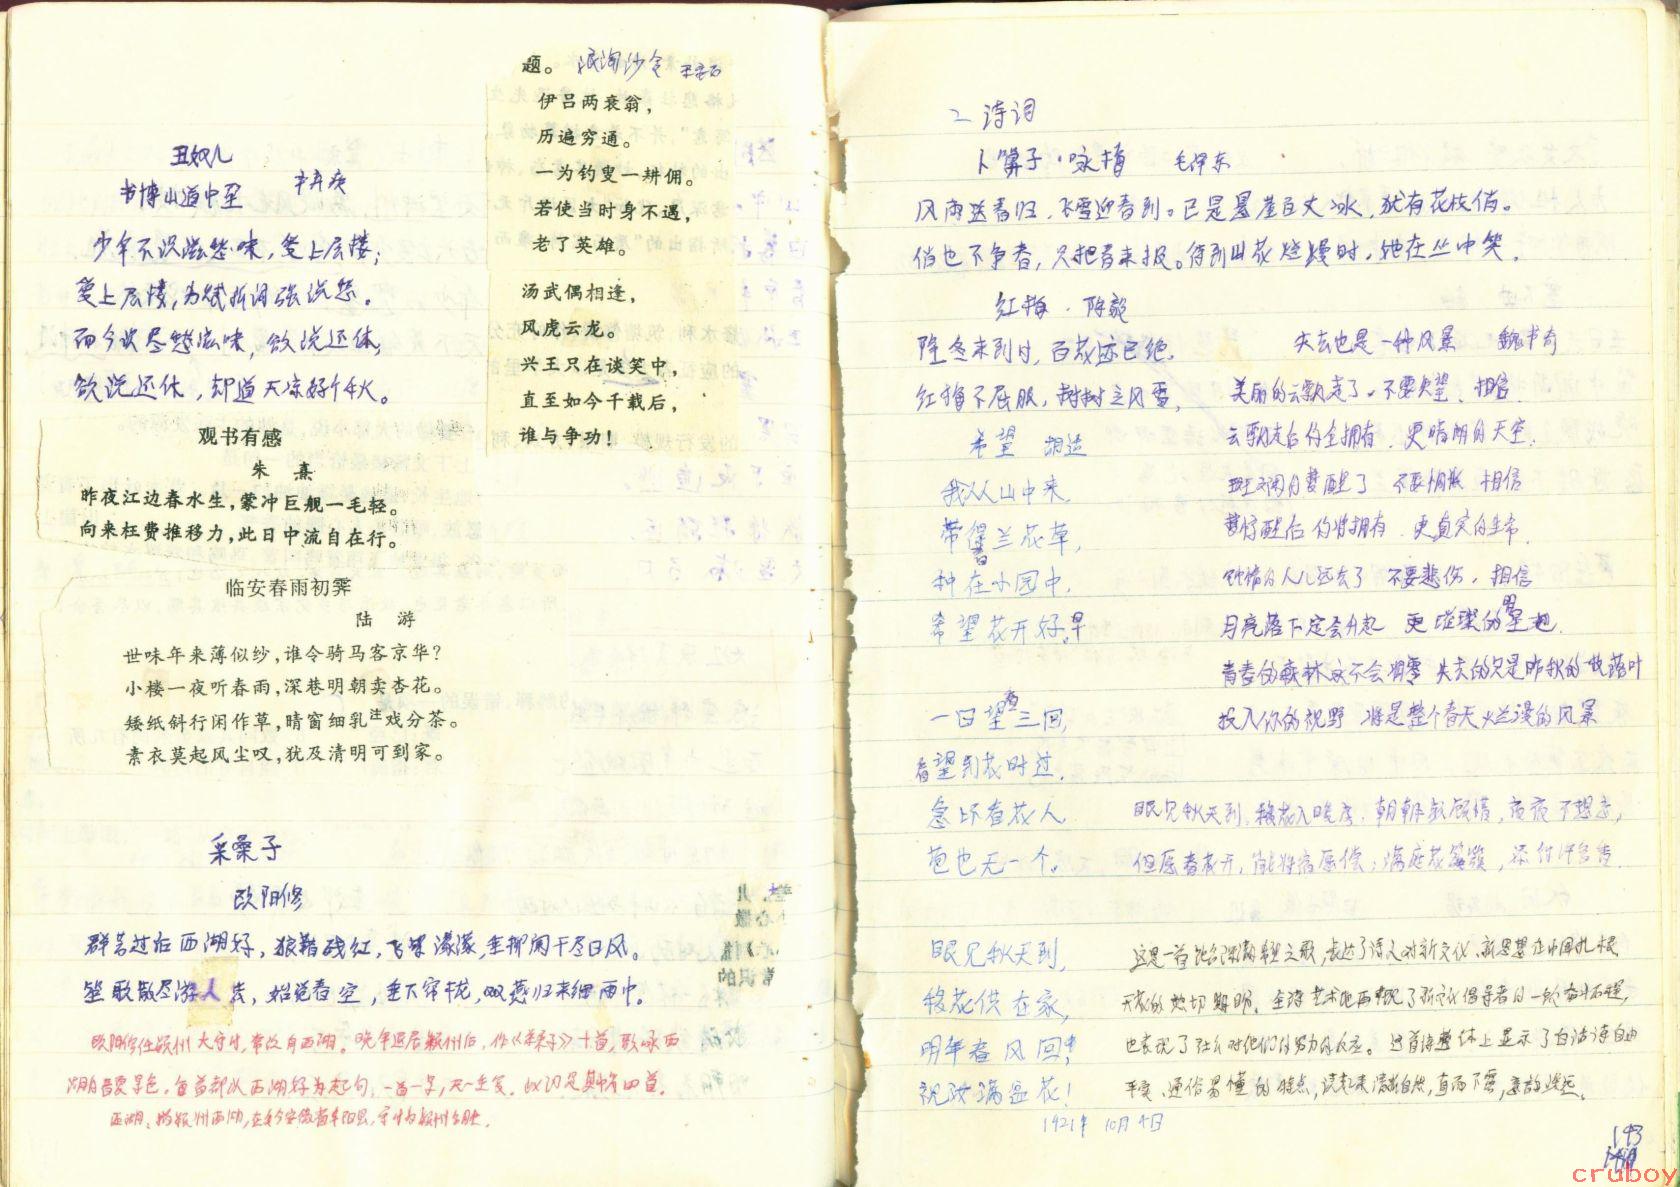 丑奴儿
书博山道中壁 辛弃疾
少年不识愁滋味，爱上层楼；
爱上层楼，为赋新词强说愁。
而今识尽愁滋味，欲说还休，
欲说还休，却道天凉好个秋。
观书有感
朱 熹
昨夜江边春水生，蒙冲巨舰一毛轻。
向来枉费推移力，此日中流自在行。
临安春雨初霁
陆 游
世味年来薄似纱，谁令骑马客京华？
小楼一夜听春雨，深巷明朝卖杏花。
矮纸斜行闲作草，晴窗细乳注戏分茶。
素衣莫起风尘叹，犹及清明可到家。
题。 浪淘沙令 王安石
伊吕两衰翁，
历遍穷通。
一为钓叟一耕佣。
若使当时身不遇，
老了英雄。
汤武偶相逢，
风虎云龙。
兴王只在谈笑中，
直至如今千载后，
谁与争功！
采桑子
欧阳修
群芳过后西湖好，狼藉残红，飞絮濛濛，垂柳阑干尽日风。
笙歌散尽游人去，始觉春空，垂下帘栊，双燕归来细雨中。
欧阳修任颍州太守时，常游西湖。晚年退居颍州后，作《采桑子》十首，歌咏西
湖
二 诗词
卜算子·咏梅 毛泽东
风雨送春归，飞雪迎春到。已是悬崖百丈冰，犹有花枝俏。
俏也不争春，只把春来报。待到山花烂漫时，她在丛中笑。
红梅·陈毅
隆冬来到时，百花迹已绝，
红梅不屈服，树树立风雪。
希望 胡适
我从山中来
带得兰花草，
种在小园中，
希望花开好。早
一日望三回，
看望到花时过，
急坏看花人
苞也无一个。
眼见秋天到，
移花供在家，
明年春风回，
祝汝满盆花！
1921年10月4日
失去也是一种风景 魏书奇
美丽的云飘走了 不要失望，相信
云飘走后你会拥有 更晴朗的天空，
斑斓的梦醒了 不要惆怅 相信
梦醒后你将拥有 更真实的生命
钟情的人儿远去了 不要悲伤，相信
月亮落下定会升起 更璀璨的星
青春的森林永不会凋零 失去的只是昨秋的一枚落叶
投入你的视野 将是整个春天烂漫的风景
眼见秋天到，移花入暖房，朝朝频顾惜，夜夜不想忘，
但愿春花开，能将宿愿偿；满庭花簇簇，
这是一首 之歌，表达了诗人对新文化、新思想在中国扎根
开花的热切期盼。
平实、通俗易懂的特点，读起来清新自然，直而不露，意韵悠远。
193
cruboy